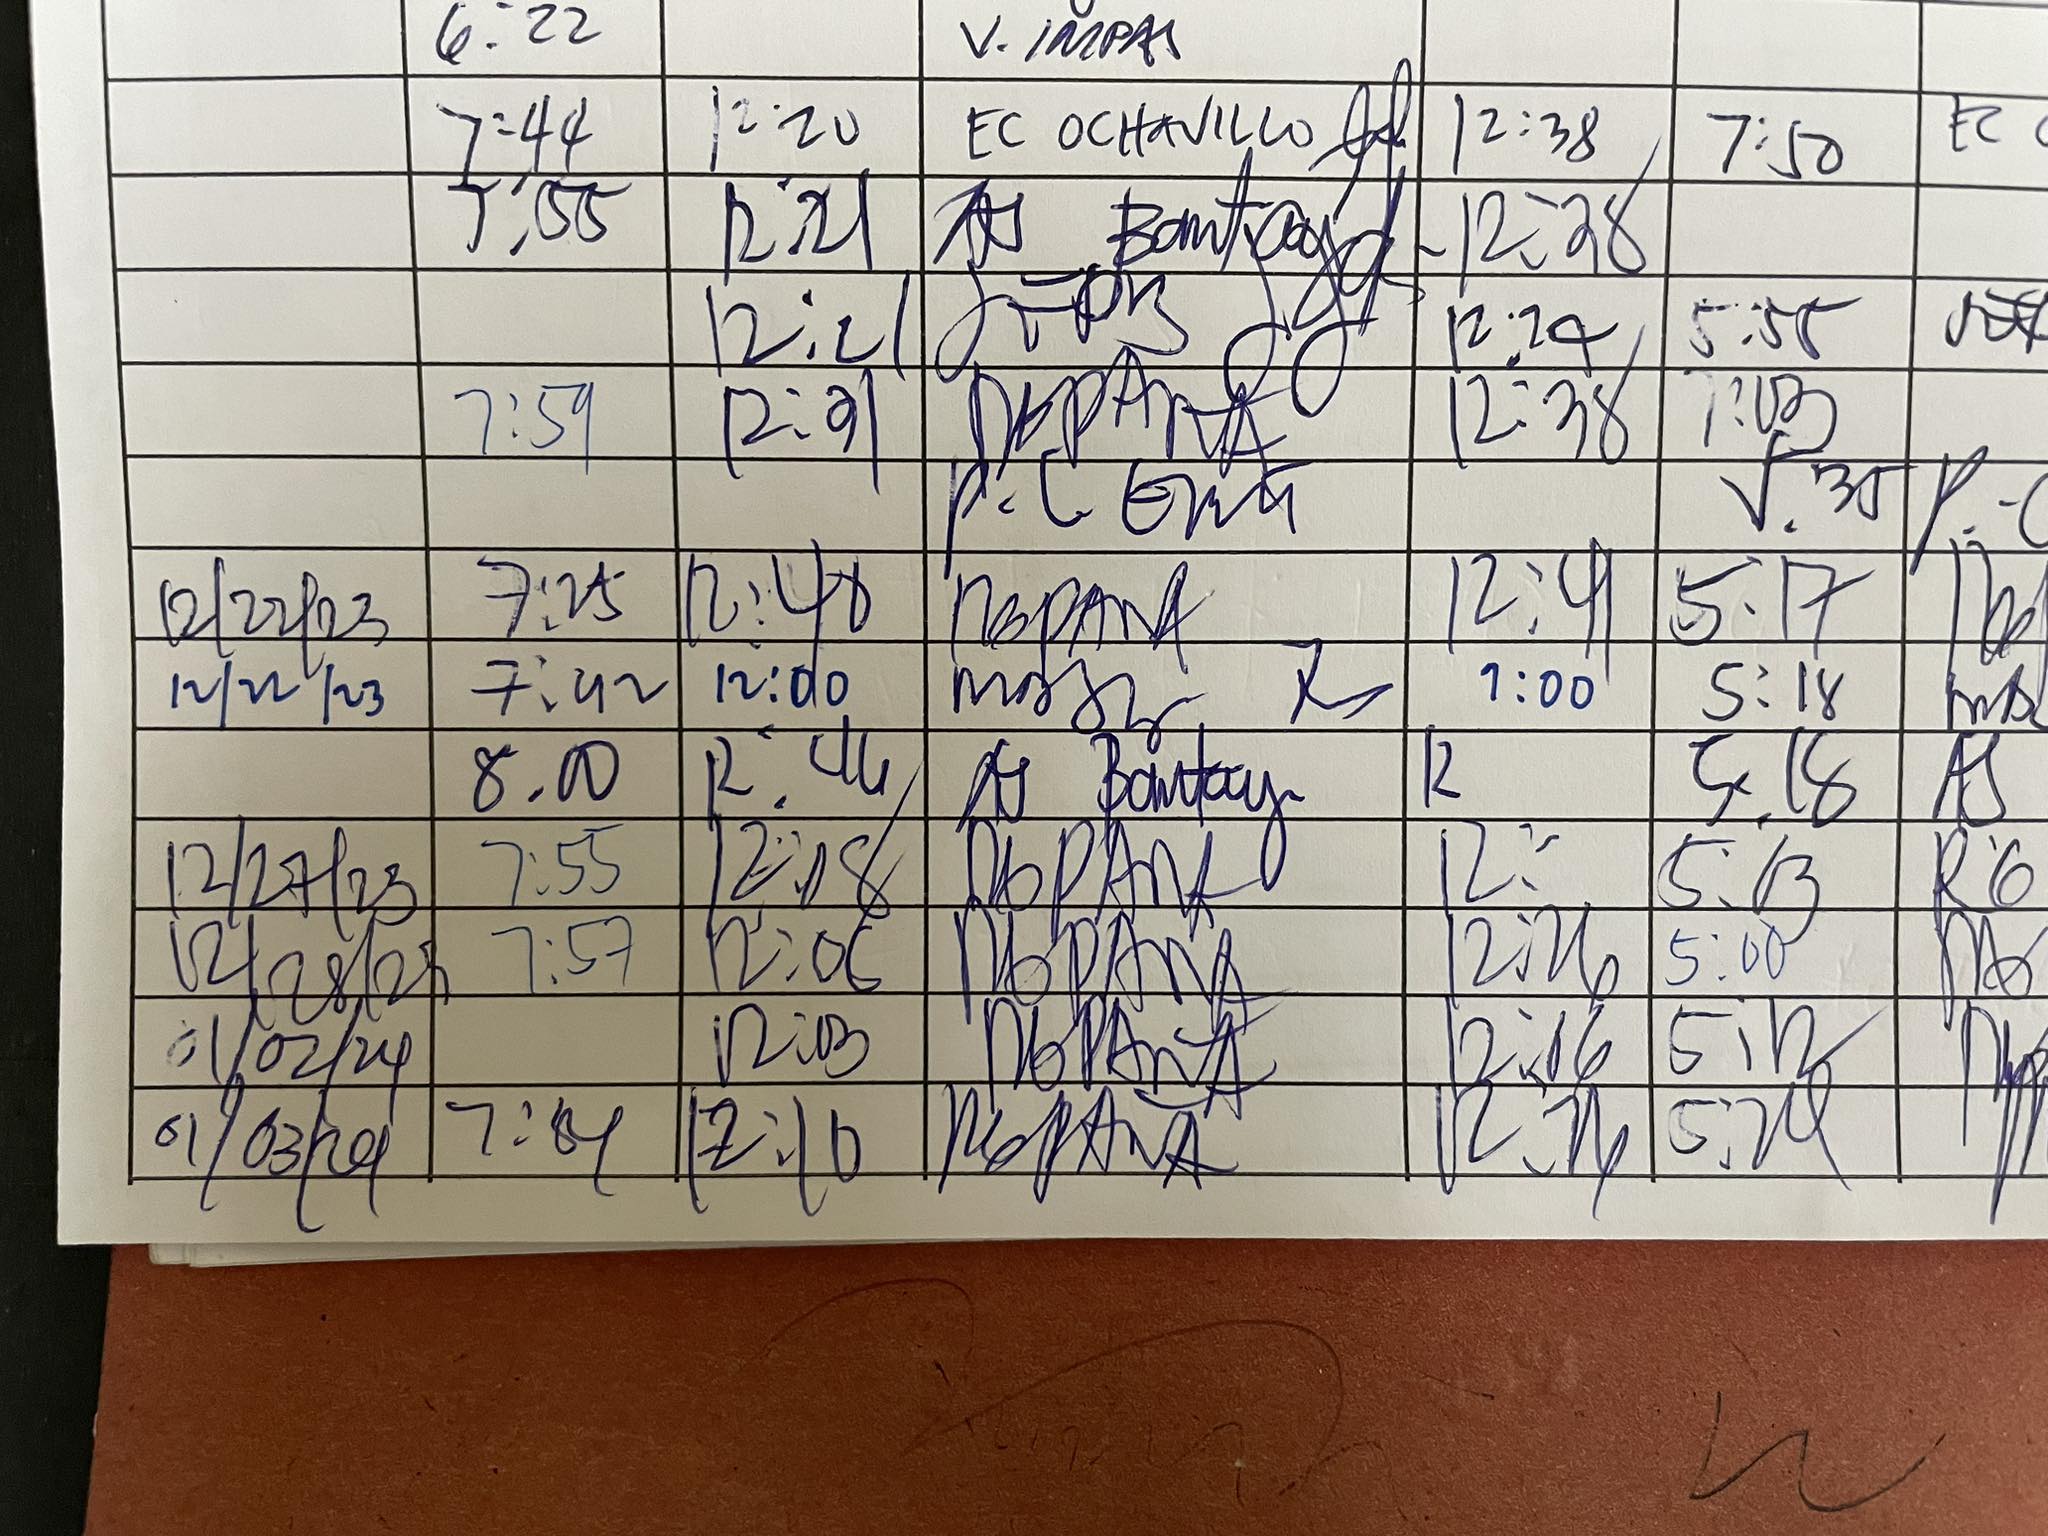 6:22 V. IMPAS
7:44 12:20 EC OCHAVILLO 12:38 7:50 EC
7:55 12:21 AS Bantay 12:28
12:21 12:24 5:55
7:59 12:21 NGPANA 12:38 7:03
P.C 5.35 P.C
12/22/23 7:25 12:40 NGPANA 12:41 5:17
12/22/23 7:42 12:00 1:00 5:18
8.00 12.46 AS Bantay 12 5.18 AS
12/27/23 7:55 12:18 NGPANA 12: 5:13
12/28/23 7:57 12:06 NGPANA 12:26 5:00 NG
01/02/24 12:03 NGPANA 12:16 5:12
01/03/24 12:10 NGPANA 12:26 5:24